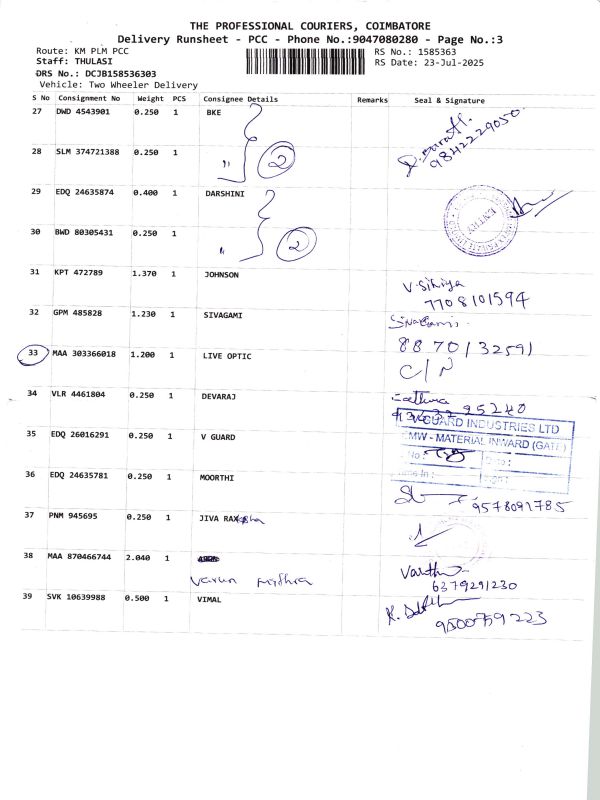 THE PROFESSIONAL COURIERS, COIMBATORE
Delivery Runsheet - PCC - Phone No.:9047080280 - Page No.:3
Route: KM PLM PCC
RS No.: 1585363
Staff: THULASI
RS Date: 23-Jul-2025
DRS No.: DCJB158536303
Vehicle: Two Wheeler Delivery
S No Consignment No Weight PCS Consignee Details Remarks Seal & Signature
27 DWD 4543901 0.250 1 BKE
9842229050
28 SLM 374721388 0.250 1 " 2
29 EDQ 24635874 0.400 1 DARSHINI
ENTRY
30 BWD 80305431 0.250 1 " 2
31 KPT 472789 1.370 1 JOHNSON
7708101594
32 GPM 485828 1.230 1 SIVAGAMI
Sivagami
33 MAA 303366018 1.200 1 LIVE OPTIC
8870132591
C/N
34 VLR 4461804 0.250 1 DEVARAJ
95240
V GUARD INDUSTRIES LTD
35 EDQ 26016291 0.250 1 V GUARD
CMW - MATERIAL INWARD (GATE)
No :
36 EDQ 24635781 0.250 1 MOORTHI
Time In :
9578091785
37 PNM 945695 0.250 1 JIVA RAKsha
38 MAA 870466744 2.040 1
Varun Mithra
6379291230
39 SVK 10639988 0.500 1 VIMAL
9500759223